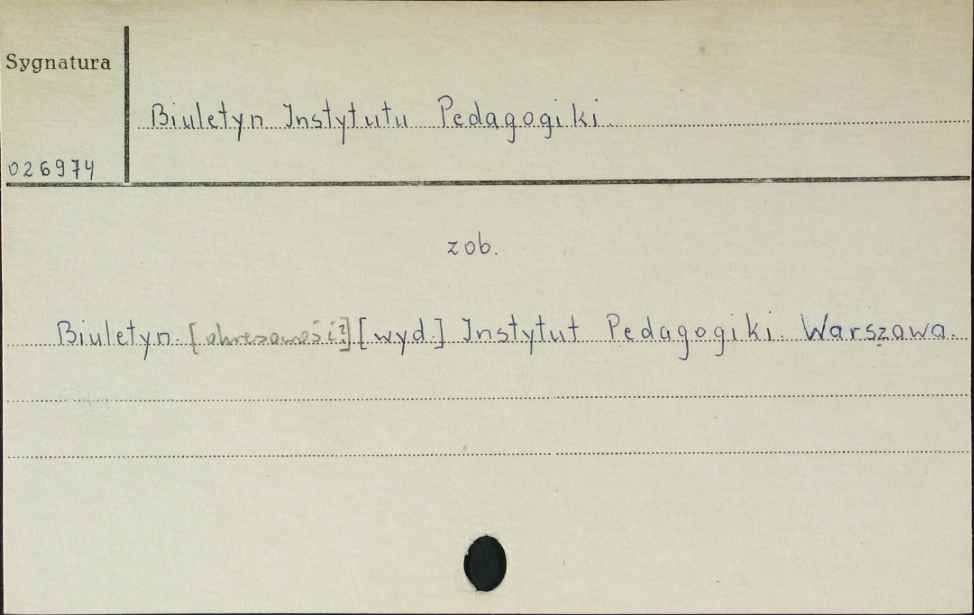 Sygnatura
Biuletyn Instytutu Pedagogiki.
026974
zob.
Biuletyn. [wyd.] Instytut Pedagogiki. Warszawa.